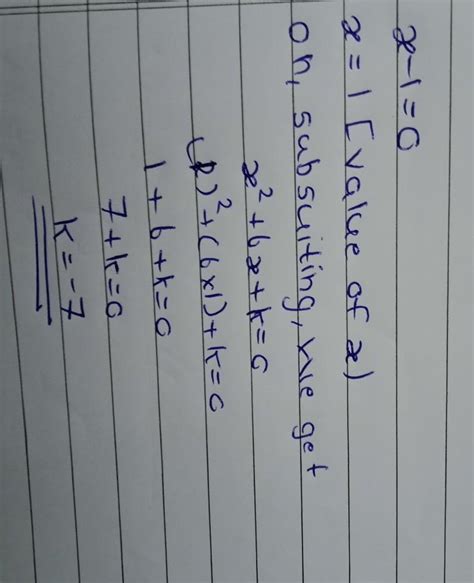 x-1=0
x=1 [value of x)
on, subsuiting, we get
x²+6x+k=0
(1)²+(6x1)+k=0
1+6+k=0
7+k=0
k=-7